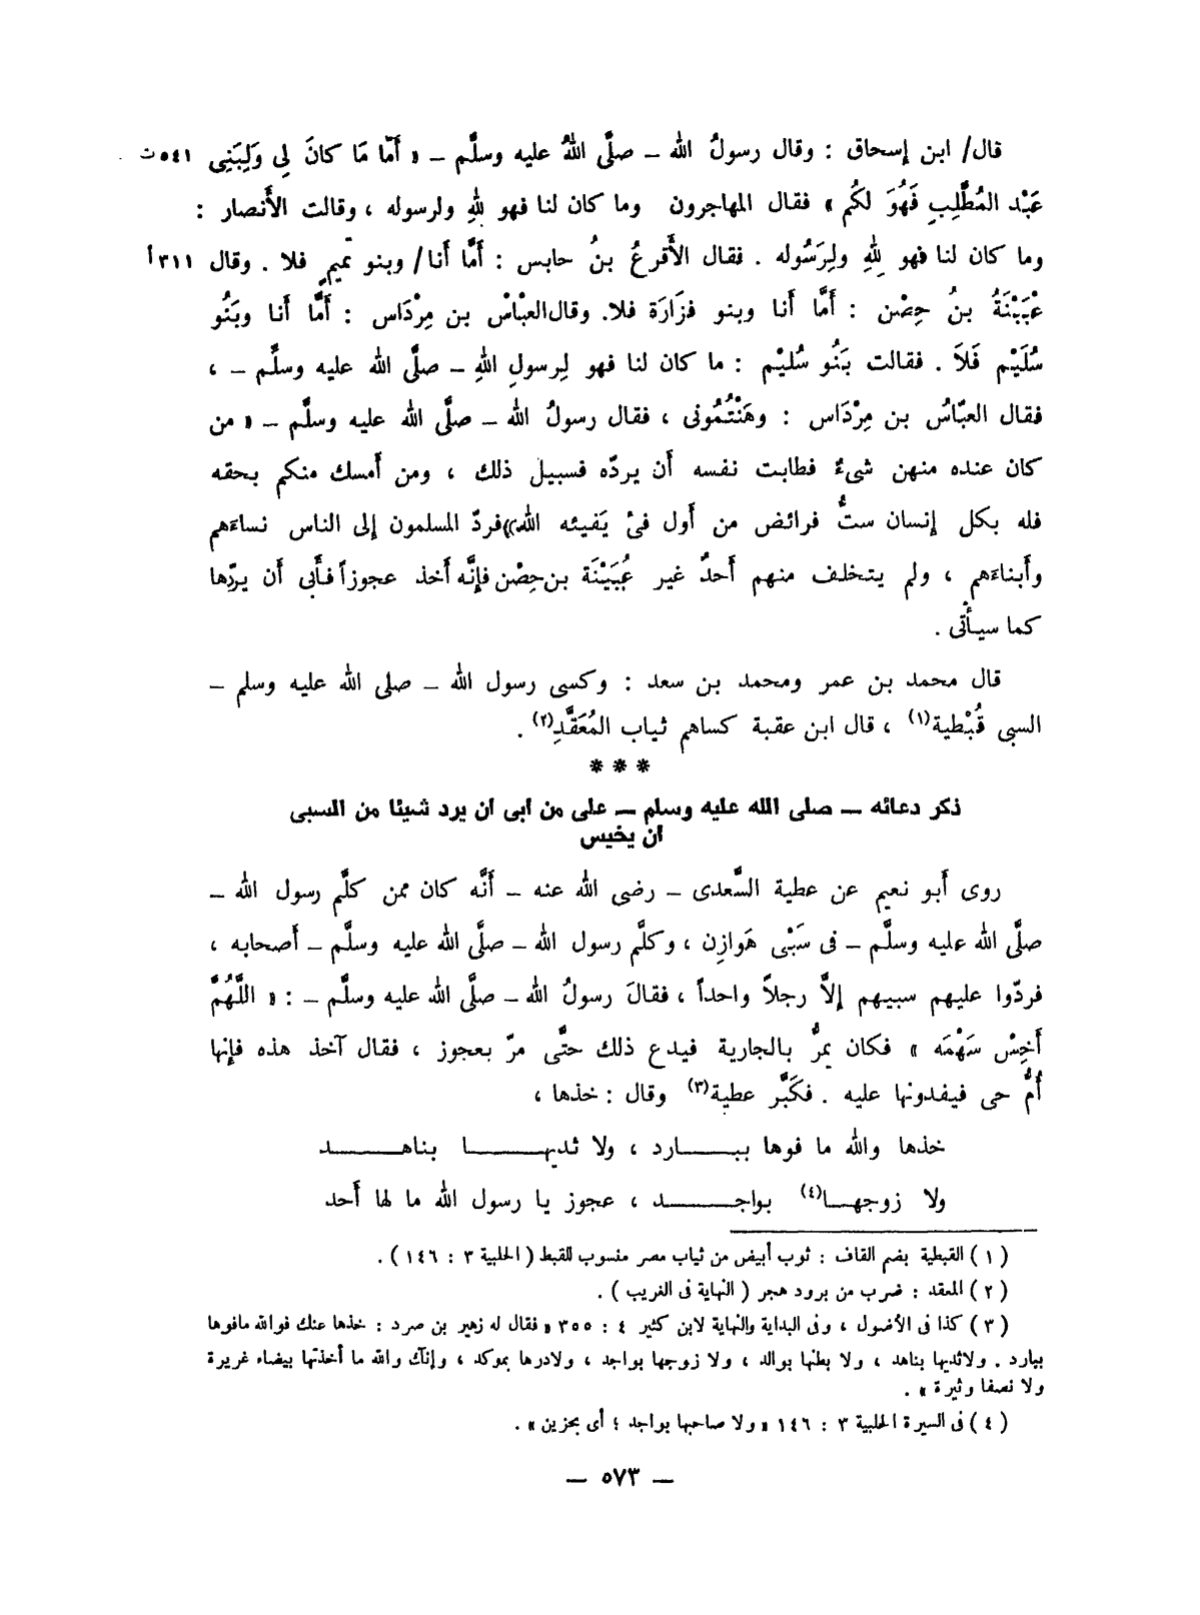 قال/ ابن إسحاق : وقال رسولُ الله – صلَّى اللهُ عليه وسلَّم – « أَمَّا مَا كانَ لِى وَلِبَنِى ٥٤١ت
عَبْد المُطَّلِبِ فَهُوَ لكُم » فقال المهاجرون وما كان لنا فهو للهِ ولرسوله ، وقالت الأَنصار :
وما كان لنا فهو لِلهِ ولِرَسُوله . فقال الأَقرعُ بنُ حابس : أَمَّا أَنا/ وبنو تميمٍ فلا . وقال ٣١١أ
عُيَيْنَةُ بنُ حِصْن : أَمَّا أَنا وبنو فزَارَة فلا. وقال العبَّاسُ بن مِرْدَاس : أَمَّا أَنا وبَنُو
سُلَيْم فَلاَ . فقالت بَنُو سُليْم : ما كان لنا فهو لِرسولِ اللهِ – صلَّى الله عليه وسلَّم – ،
فقال العبّاسُ بن مِرْدَاس : وهَنْتُمُونى ، فقال رسولُ الله – صلَّى الله عليه وسلَّم – « من
كان عنده منهن شىءٌ فطابت نفسه أَن يردّه فسبيل ذلك ، ومن أَمسك منكم بحقه
فله بكل إنسان ستُّ فرائض من أَول فىْ يَفيئه الله » فردّ المسلمون إلى الناس نساءَهم
وأَبناءَهم ، ولم يتخلف منهم أَحدٌ غير عُيَيْنَة بن حِصْن فإنَّه أَخذ عجوزاً فأَبى أَن يردّها
كما سيأْتى .
قال محمد بن عمر ومحمد بن سعد : وكسى رسول الله – صلى الله عليه وسلم –
السبى قُبْطية(١) ، قال ابن عقبة كساهم ثياب المُعَقَّدِ(٢) .
* * *
ذكر دعائه – صلى الله عليه وسلم – على من ابى ان يرد شيئا من السبى
ان يخيس
روى أَبو نعيم عن عطية السَّعدى – رضى الله عنه – أَنَّه كان ممن كلَّم رسول الله –
صلَّى الله عليه وسلَّم – فى سَبْى هَوازِن ، وكلَّم رسول الله – صلَّى الله عليه وسلَّم – أَصحابه ،
فردّوا عليهم سبيهم إلاَّ رجلاً واحداً ، فقالَ رسولُ الله – صلَّى الله عليه وسلَّم – : « اللَّهُمَّ
أَخِسْ سَهْمَه » فكان يمرُّ بالجارية فيدع ذلك حتَّى مرّ بعجوز ، فقال آخذ هذه فإنها
أُمُّ حى فيفدونها عليه . فكَبَّر عطية(٣) وقال : خذها ،
خذها والله ما فوها ببــــارد ، ولا ثديهــــا بناهــــد
ولا زوجهــا(٤) بواجــــد ، عجوز يا رسول الله ما لها أَحد
( ١ ) القبطية بضم القاف : ثوب أبيض من ثياب مصر منسوب للقبط ( الحلبية ٣ : ١٤٦ ) .
( ٢ ) المعقد : ضرب من برود هجر ( النهاية فى الغريب ) .
( ٣ ) كذا فى الأصول ، وفى البداية والنهاية لابن كثير ٤ : ٣٥٥ « فقال له زهير بن صرد : خذها عنك فوالله مافوها
ببارد . ولاثديها بناهد ، ولا بطنها بوالد ، ولا زوجها بواجد ، ولادرها بموكد ، وإنك والله ما أخذتها بيضاء غريرة
ولا نصفا وثيرة » .
( ٤ ) فى السيرة الحلبية ٣ : ١٤٦ « ولا صاحبها بواجد ؛ أى بحزين » .
– ٥٧٣ –